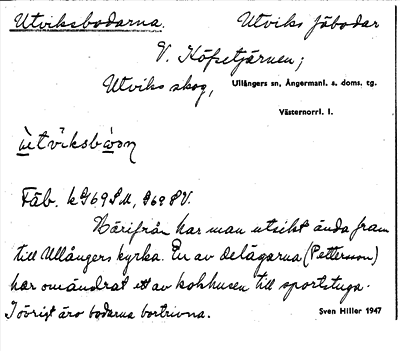 Utviksbodarna. Utviks fäbodar
V. Höfsetjärnen;
Utviks skog, Ullångers sn, Ångermanl. s. doms. tg.
Västernorrl. l.
Fäb.
Härifrån har man utsikt ända fram
till Ullångers kyrka. En av delägarna (Petterson)
har omändrat ett av kokhusen till sportstuga.
I övrigt äro bodarna bortrivna. Sven Hiller 1947